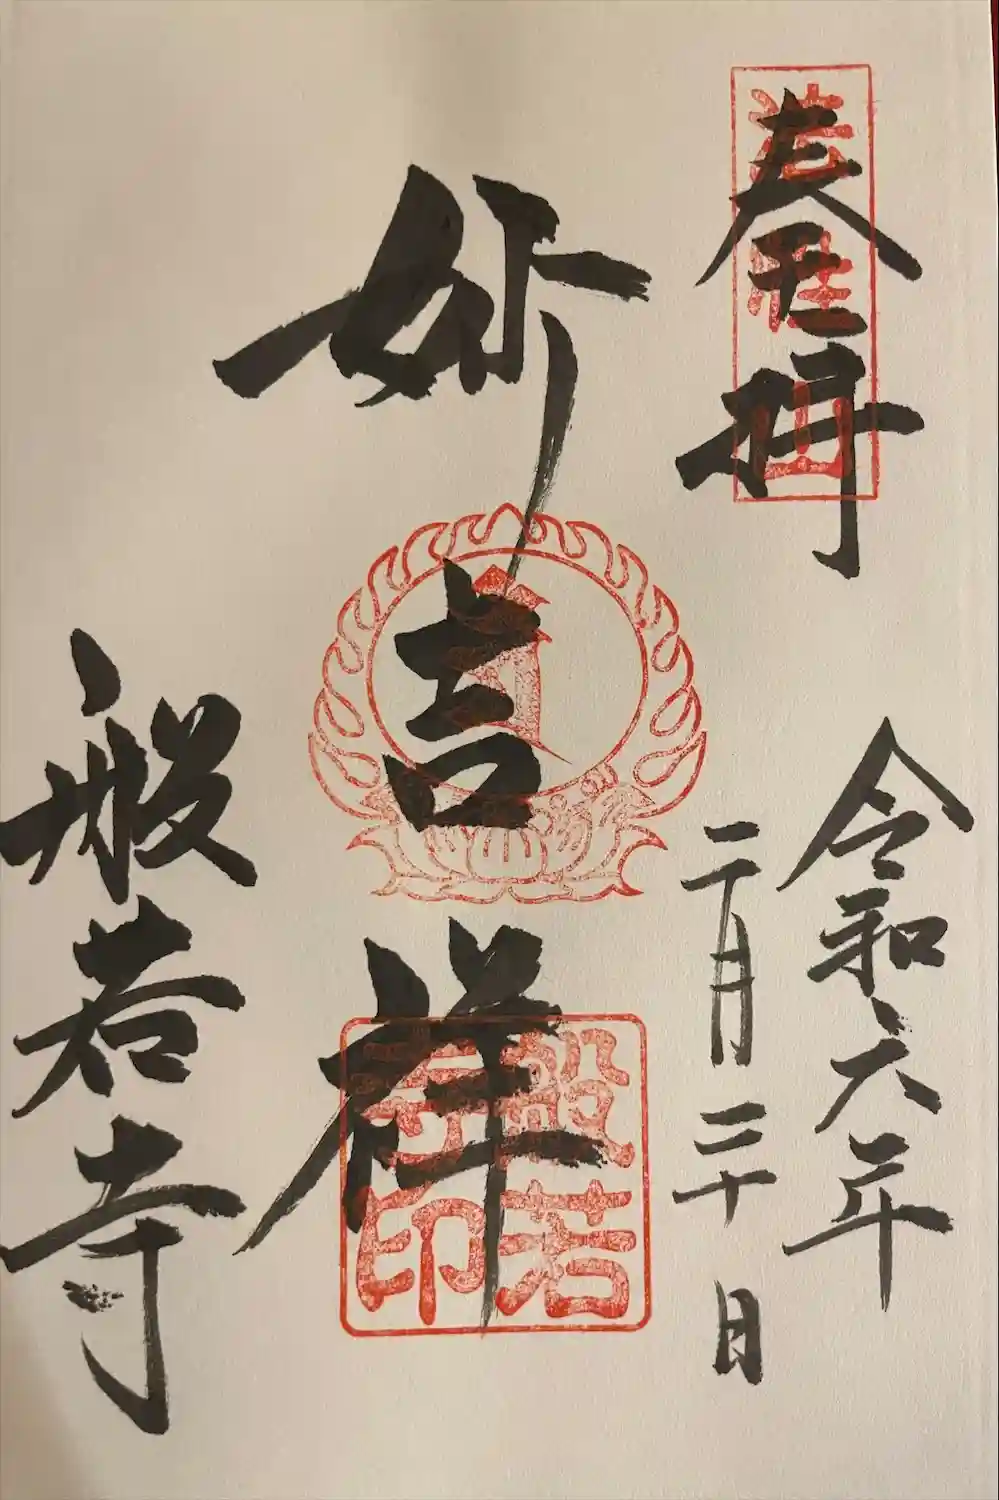 奉拝
法性山
令和六年
月二十日
妙吉祥
般若
寺印
般若寺